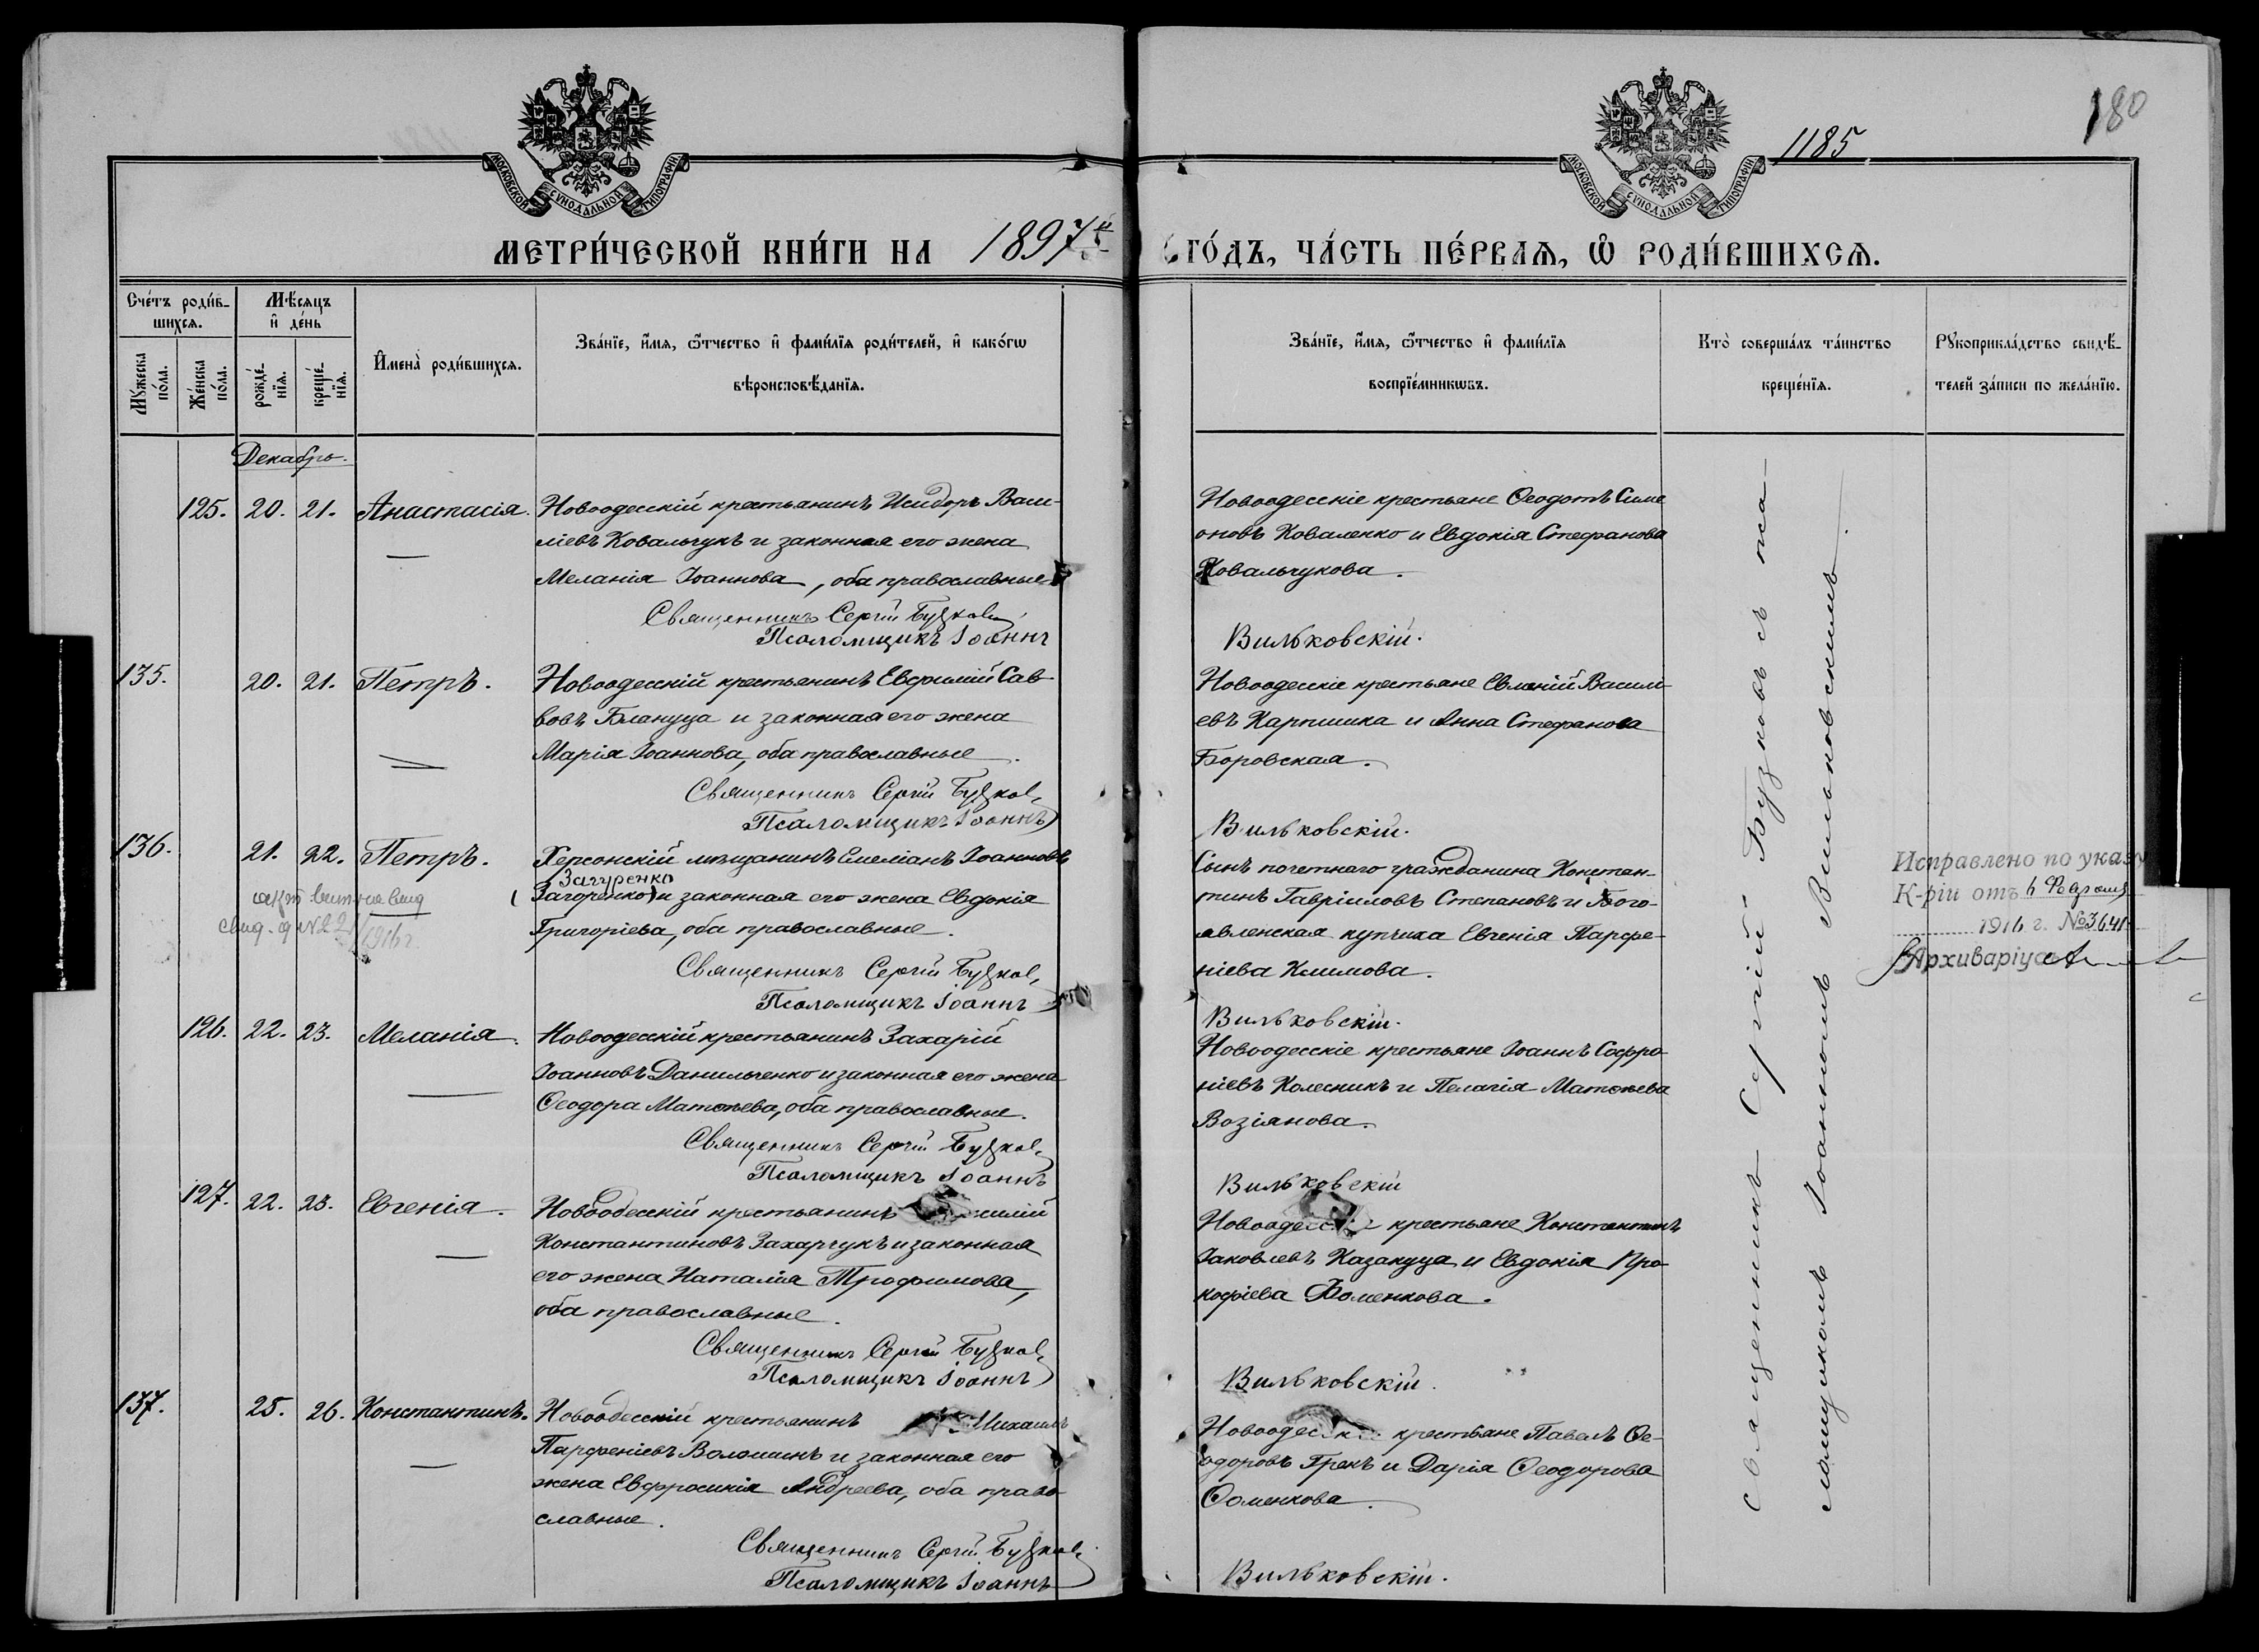 180
1185
МОСКОВСКОЙ СУНОДАЛЬНОЙ ТИПОГРАФІИ
МОСКОВСКОЙ СУНОДАЛЬНОЙ ТИПОГРАФІИ
МЕТРИ́ЧЕСКОЙ КНИ́ГИ НА 1897й ГО́ДЪ, ЧА́СТЬ ПЕ́РВАѦ, Ѽ РОДИ́ВШИХСѦ.
Сче́тъ роди́в-
шихсѧ.
Мѣ́сѧцъ
и҆ де́нь
Мꙋ́жеска
по́ла.
Же́нска
по́ла.
рожде́-
нїѧ.
креще́-
нїѧ.
И҆мена̀ роди́вшихсѧ.
Зва́нїе, и҆́мѧ, ѻ҆́тчество и҆ фами́лїѧ роди́телей, и҆ како́гѡ
вѣроисповѣ́данїѧ.
Зва́нїе, и҆́мѧ, ѻ҆́тчество и҆ фами́лїѧ
воспрїе́мникѡвъ.
Кто̀ соверша́лъ та́инство
креще́нїѧ.
Рꙋкоприкла́дство свидѣ́-
телей за́писи по жела́нїю.
Декабрь.
125. 20. 21. Анастасія. Новоодесскій крестьянинъ Исидоръ Васи-
ліевъ Ковальчукъ и законная его жена
Меланія Іоаннова, оба православные
Священникъ Сергій Бузков
Псаломщикъ Іоаннъ
Новоодесскіе крестьяне Ѳеодотъ Симе
оновъ Коваленко и Евдокія Стефанова
Ковальчукова.
Вильковскій.
135. 20. 21. Петръ. Новоодесскій крестьянинъ Евфимій Сав-
вовъ Блануца и законная его жена
Марія Іоаннова, оба православные.
Священникъ Сергій Бузков
Псаломщикъ Іоаннъ
Новоодесскіе крестьяне Евменій Василі-
евъ Карпишка и Анна Стефанова
Боровская.
Вильковскій.
136. 21. 22. Петръ. Херсонскій мѣщанинъ Емеліанъ Іоанновъ
Загуренко
(Загоренко) и законная его жена Евдокія
Григоріева, оба православные.
Священникъ Сергій Бузков
Псаломщикъ Іоаннъ
свид. 1916 г.
Сынъ почетнаго гражданина Констан-
тинъ Гавріиловъ Степановъ и Бого-
явленская купчиха Евгенія Парфе-
ніева Климова.
Вильковскій.
Исправлено по указу
К-ріи отъ 4 Февраля
1916 г. № 3641
Архиваріусъ
126. 22. 23. Меланія. Новоодесскій крестьянинъ Захарій
Іоанновъ Данильченко и законная его жена
Ѳеодора Матѳеева, оба православные.
Священникъ Сергій Бузков
Псаломщикъ Іоаннъ
Новоодесскіе крестьяне Іоаннъ Софро-
ніевъ Колесникъ и Пелагія Матѳеева
Возіянова.
Вильковскій
127. 22. 23. Евгенія. Новоодесскій крестьянинъ
Константиновъ Захарчукъ и законная
его жена Наталія Трофимова,
оба православные.
Священникъ Сергій Бузков
Псаломщикъ Іоаннъ
Новоодесскіе крестьяне Константинъ
Іаковлевъ Казакуца и Евдокія Про-
кофіева Фоменкова.
Вильковскій.
137. 25. 26. Константинъ. Новоодесскій крестьянинъ Михаилъ
Парфеніевъ Волошинъ и законная его
жена Евфросинія Андреева, оба право-
славные.
Священникъ Сергій Бузков
Псаломщикъ Іоаннъ
Новоодесскіе крестьяне Павелъ Ѳе-
одоровъ Грекъ и Дарія Ѳеодорова
Ѳоменкова.
Вильковскій.
Священникъ Сергій Бузковъ съ пса-
ломщикомъ Іоанномъ Вильковскимъ.